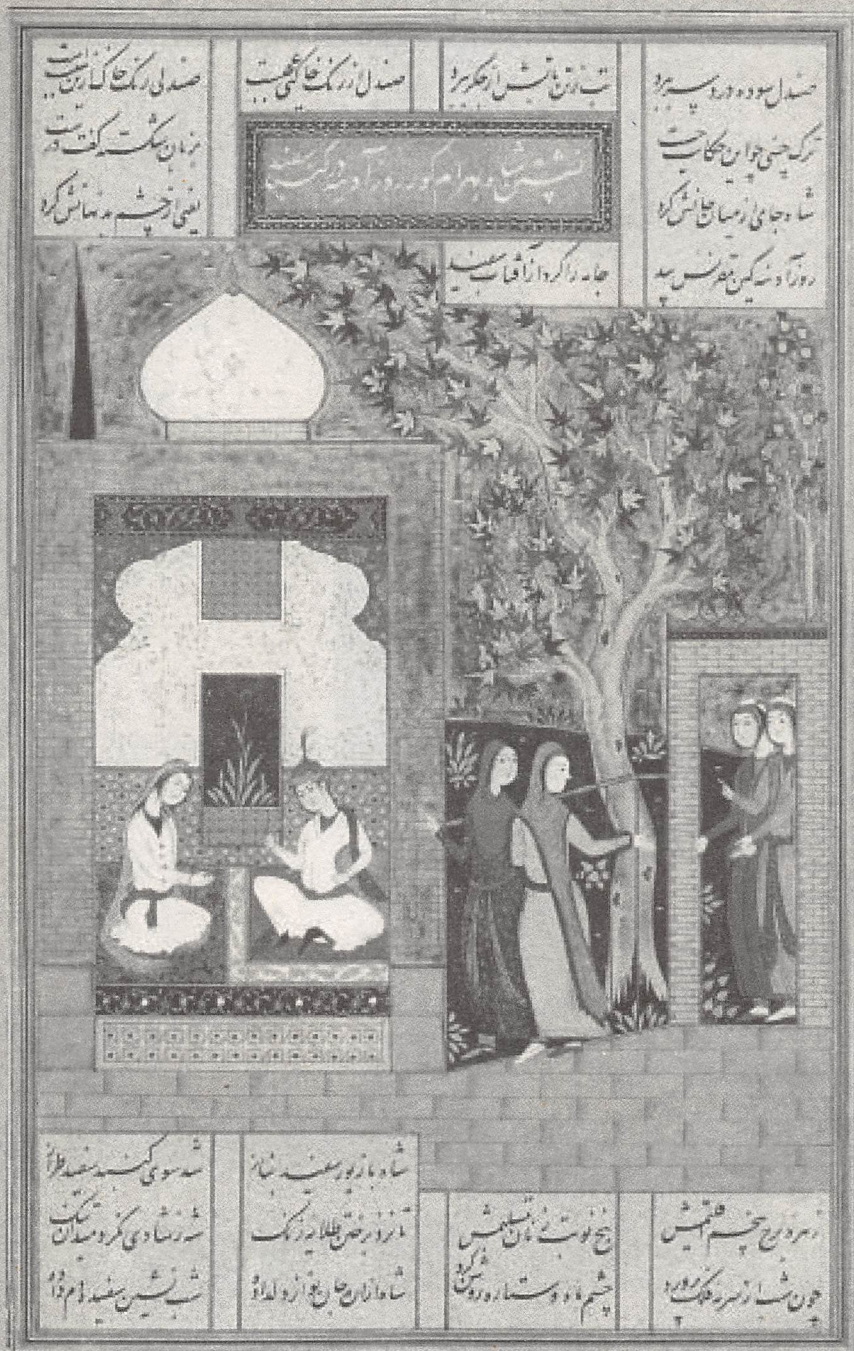 صندل سوده درد سر ببرد تب ز تن تابش از جگر ببرد صندل از رنگ خاکی عجبست صندلی رنگ خاک ازین سببست
ترک چینی چو این حکایت چست بزبان شکسته گفت درست
شاه جای از میان جانش کرد یعنی از چشم بد نهانش کرد
نشستن شاه بهرام گور روز آدینه در گنبد سفید
روز آدینه کین مقرنس بید جامه را کرد از آفتاب سفید
شاه با زیور سفید بناز شد سوی گنبد سفید طراز
زهره بر برج پنجم اقلیمش پنج نوبت زنان تسلیمش تا نزد بر ختن طلایه زنگ شه ز شادی نکرد میدان تنگ
چون شب از سرمه فلک پرورد چشم ماه و ستاره روشن کرد شاه ازان جان نواز دلداده شب نشین سفیده دم زاده